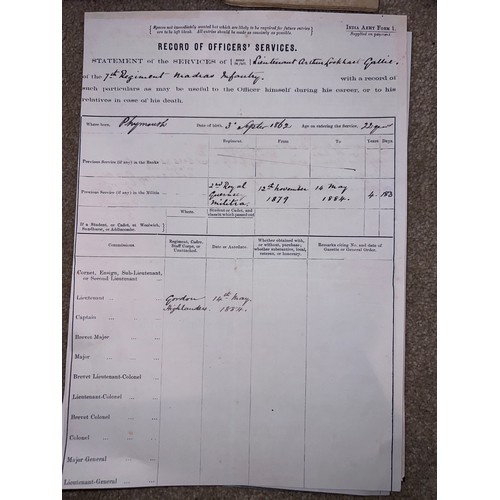 India Army Form 1.
[Spaces not immediately wanted but which are likely to be required for future service
should be left blank. All entries should be made as concisely as possible.
RECORD OF OFFICERS' SERVICES.
STATEMENT of the SERVICES of Lieutenant Arthur Lockhart Gallie
of the 7th Regiment Madras Infantry, with a record of
such particulars as may be useful to the Officer himself during his career, or to his
relatives in case of his death.
Where born, Plymouth Date of birth, 3d Septr 1862 Age on entering the Service, 22 yrs
Regiment From To Years Days
Previous Service (if any) in the Ranks
Previous Service (if any) in the Militia 2nd Royal Guernsey Militia 12th November 1879 14 May 1884. 4 183
Where Student or Cadet, and classes which passed out
If a Student, or Cadet, at Woolwich, Sandhurst, or Addiscombe
Commissions Regiment, Cadre, Staff Corps, or Unattached. Date or Antedate. Whether obtained with, or without, purchase; whether substantive, local, veteran, or honorary. Remarks citing No. and date of Gazette or General Order.
Cornet, Ensign, Sub-Lieutenant, or Second Lieutenant ...
Lieutenant ... Gordon Highlanders 14th May 1884.
Captain ...
Brevet Major ...
Major ...
Brevet Lieutenant-Colonel ...
Lieutenant-Colonel ...
Brevet Colonel ...
Colonel ...
Major-General ...
Lieutenant-General ...